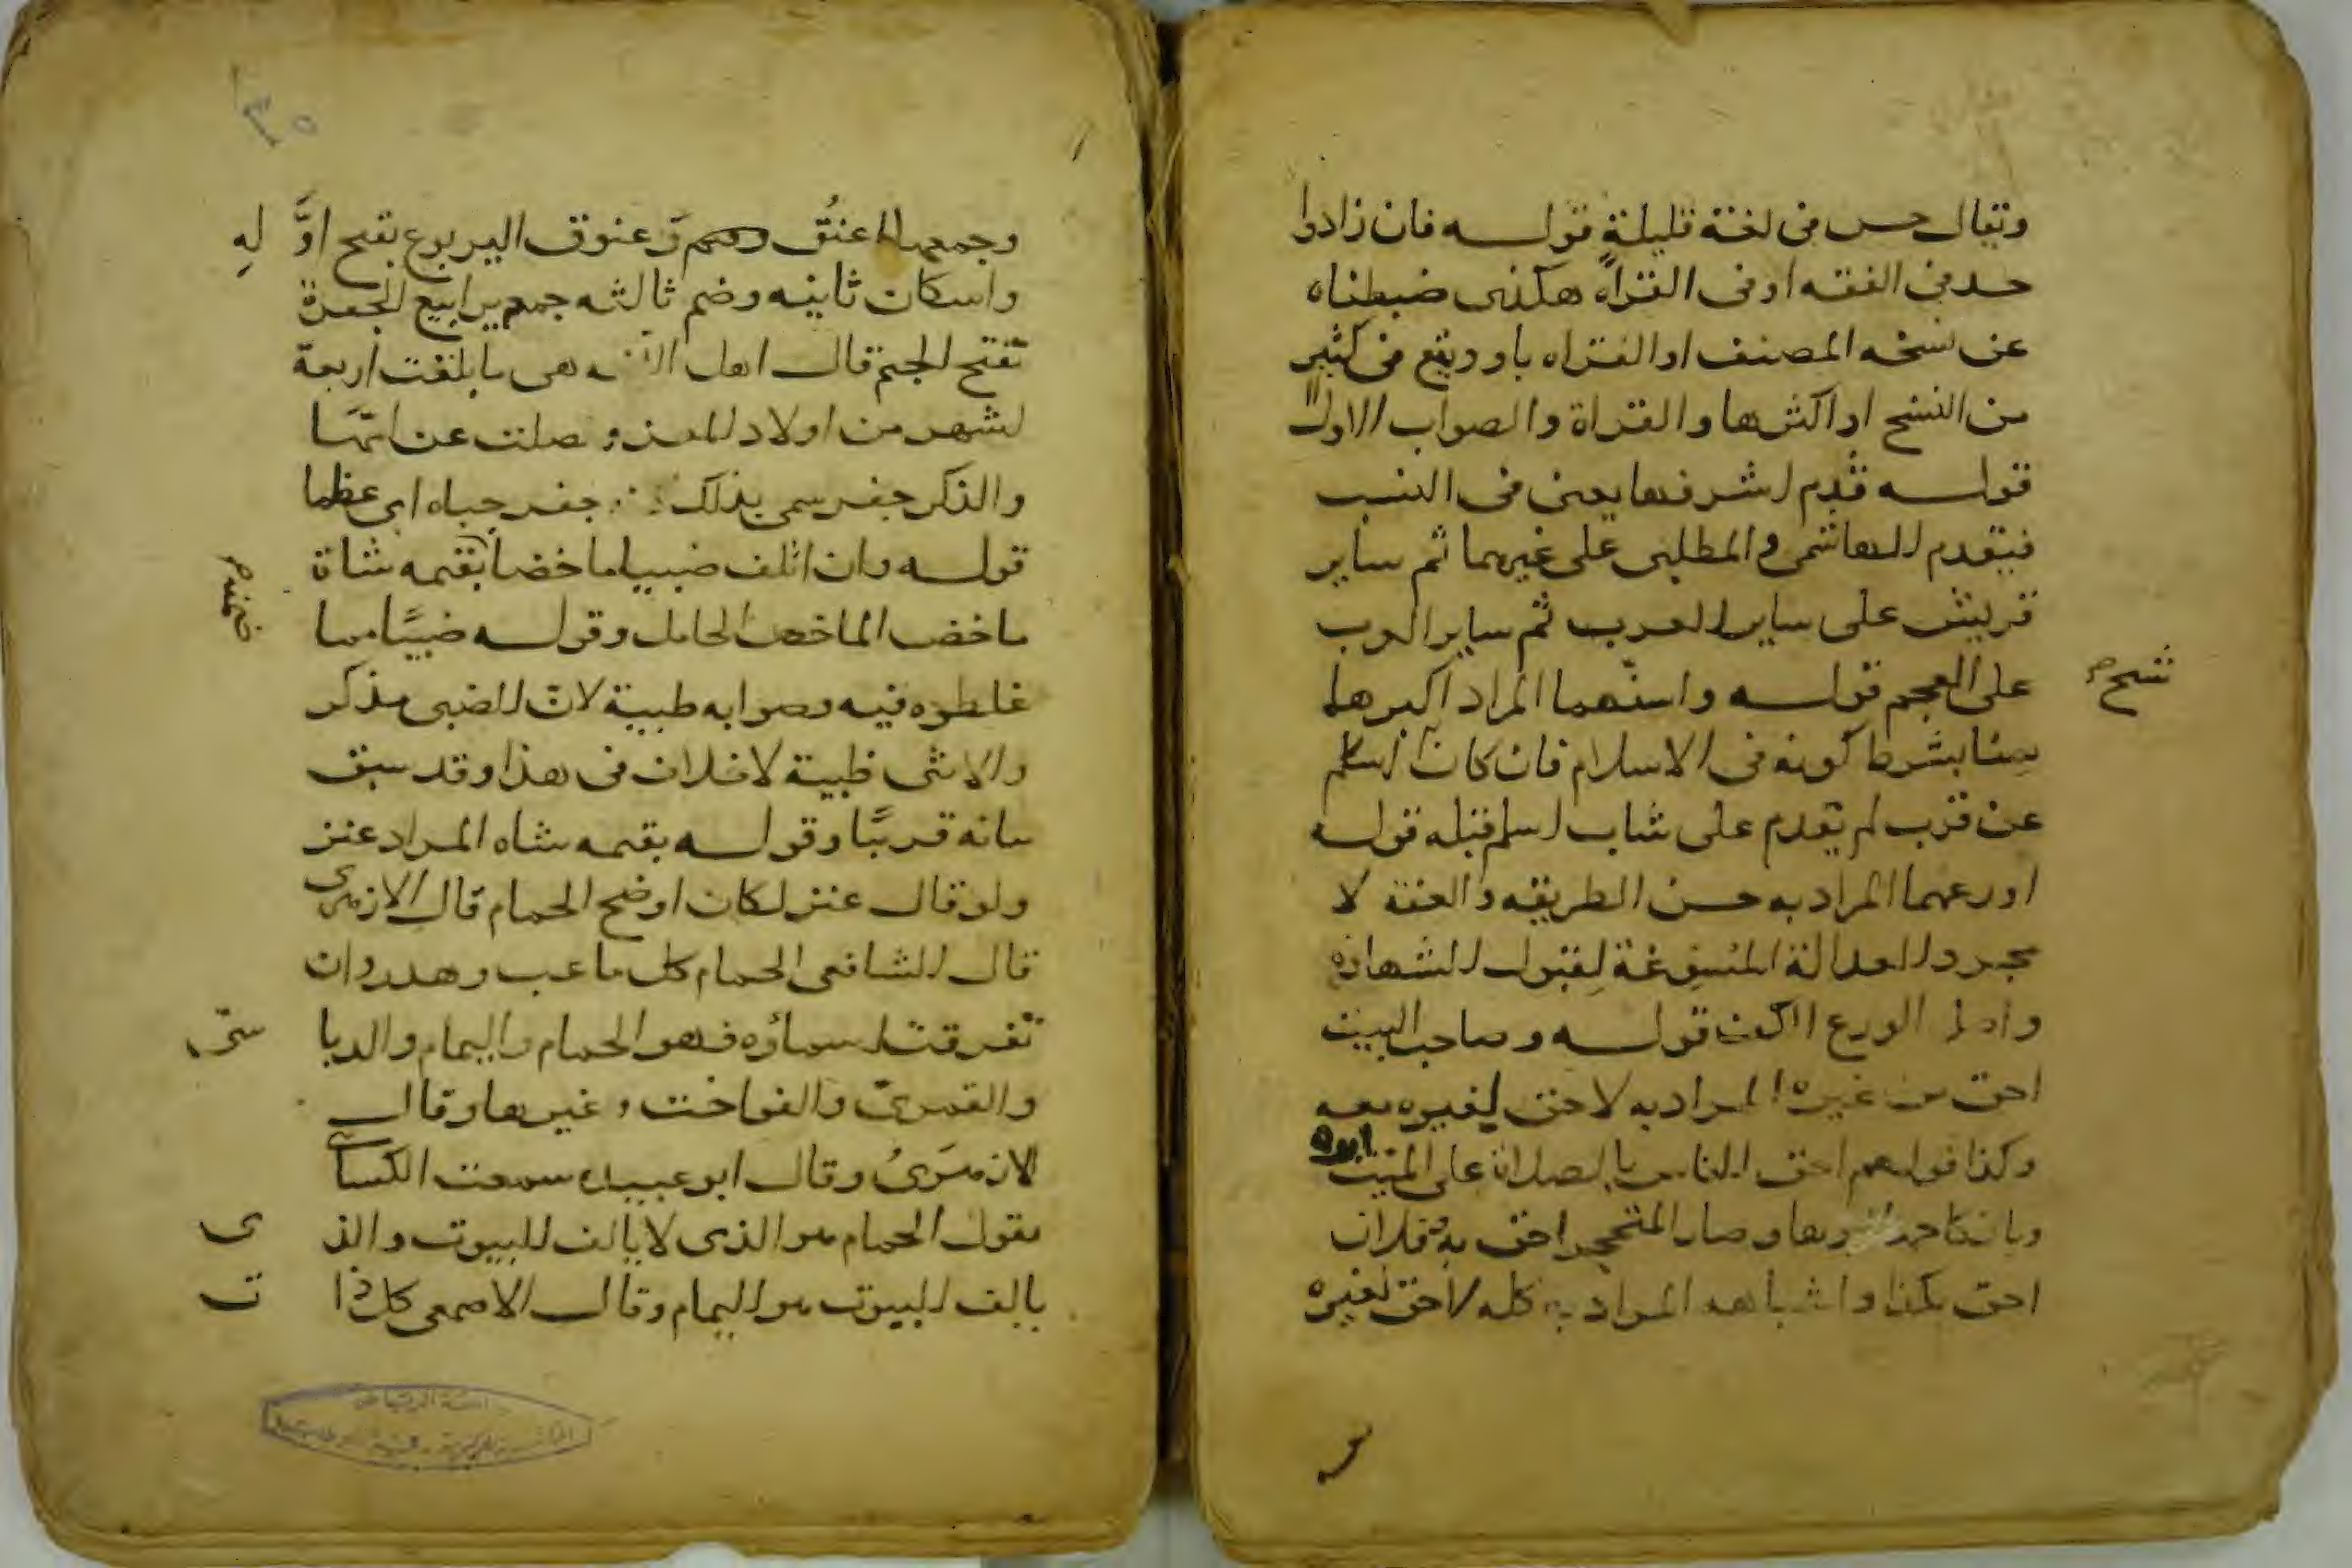 ويقال حس في لغة قليلة قولـــه فان زادوا
حد في الفقه او في القراه هكذى ضبطناه
عن نسخه المصنف او القراه باو ويقع في كثير
من النسخ او اكثرها والقراة والصواب الاول
قولـــه قدم اشرفها يعني في النسب
فيقدم الهاشمي والمطلبي على غيرهما ثم ساير
قريش على ساير العرب ثم ساير العرب
على العجم قولـــه واسنهما المراد اكبرهما
سنا بشرط كونه في الاسلام فان كان اسلم
عن قرب لم يقدم على شاب اسلم قبله قولـــه
اورعهما المراد به حسن الطريقه والعفة لا
مجرد العدالة المسوغة لقبول الشهاده
واصل الورع الكف قولـــه وصاحب البيت
احق من غيره المراد به لا حق لغيره معه
وكذا قولهم احق الناس بالصلاة على الميت ابوه
وصار المتحجر احق به وفلان
احق بكذا واشباهه المراد به كله لا حق لغيره
وجمعها اعنق وعنوق اليربوع بفتح اوله
واسكان ثانيه وضم ثالثه جمعه يرابيع الجفرة
بفتح الجيم قال اهل هي ما بلغت اربعة
اشهر من اولاد المعز وفصلت عن امها
والذكر جفر سمي بذلك جفر جنباه اي عظما
قولـــه وان اتلف ضبيا ماخضا ضمنه بقيمه شاة
ماخض الماخض الحامل وقولـــه ضبيا مما
غلطوه فيه وصوابه ظبية لان الضبي مذكر
والانثى ظبية لا خلاف في هذا وقد سبق
بيانه قريبا وقولـــه بقيمه شاه المراد عنز
ولو قال عنز لكان اوضح الحمام قال الازهرى
قال الشافعي الحمام كل ما عب وهدر وان
تفرقت اسماؤه فهو الحمام واليمام والدباسى
والقمرى والفواخت وغيرها وقال
الازهرى وقال ابو عبيده سمعت الكسائي
يقول الحمام هو الذى لا يالف البيوت والذى
يالف البيوت هو اليمام وقال الاصمعي كل ذات